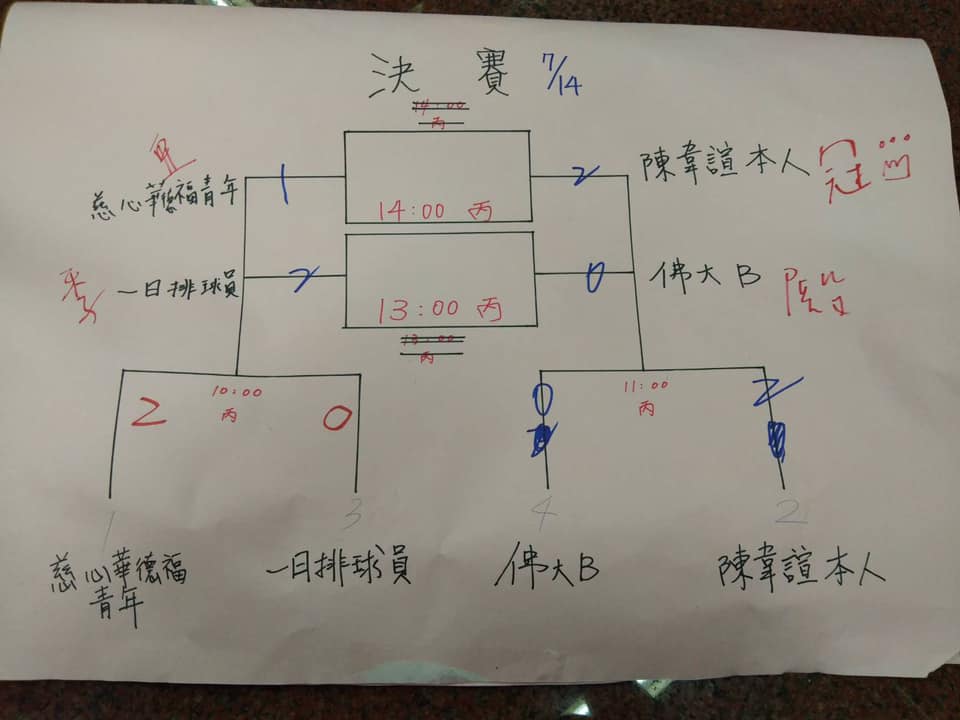 決 賽 7/14
14:00
丙
慈心華德福青年
1
2
陳韋諠本人
冠
14:00 丙
季
一日排球員
2
0
佛大B
殿
13:00 丙
13:00
丙
2
10:00
丙
0
0
11:00
丙
2
1
3
4
2
慈心華德福
青年
一日排球員
佛大B
陳韋諠本人